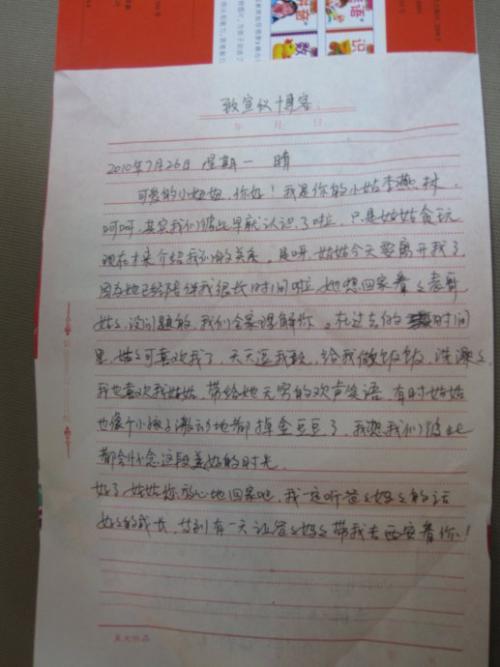 英语
识
数
敖宣仪博客:
年 月 日
2010年7月26日 星期一 晴
可爱的小妞妞,你好!我是你的小姑李燕林,
呵呵,其实我们彼此早就认识了啦,只是姑姑贪玩
现在才来介绍我们的关系。是呀,姑姑今天要离开我了
因为她已经陪伴我很长时间啦,她想回家看看
姑姑,没问题的,我们会理解你。在过去的时间
里,姑姑可喜欢我了,天天逗我玩,给我做饭饭,洗澡澡
我也喜欢我姑姑,带给她无穷的欢声笑语,有时姑姑
也像个小孩子激动地都掉金豆豆了,我想我们彼此
都会怀念这段美好的时光。
好了姑姑您放心地回家吧,我一定听爸爸妈妈的话
好好的成长,等到有一天让爸爸妈妈带我去西安看你!